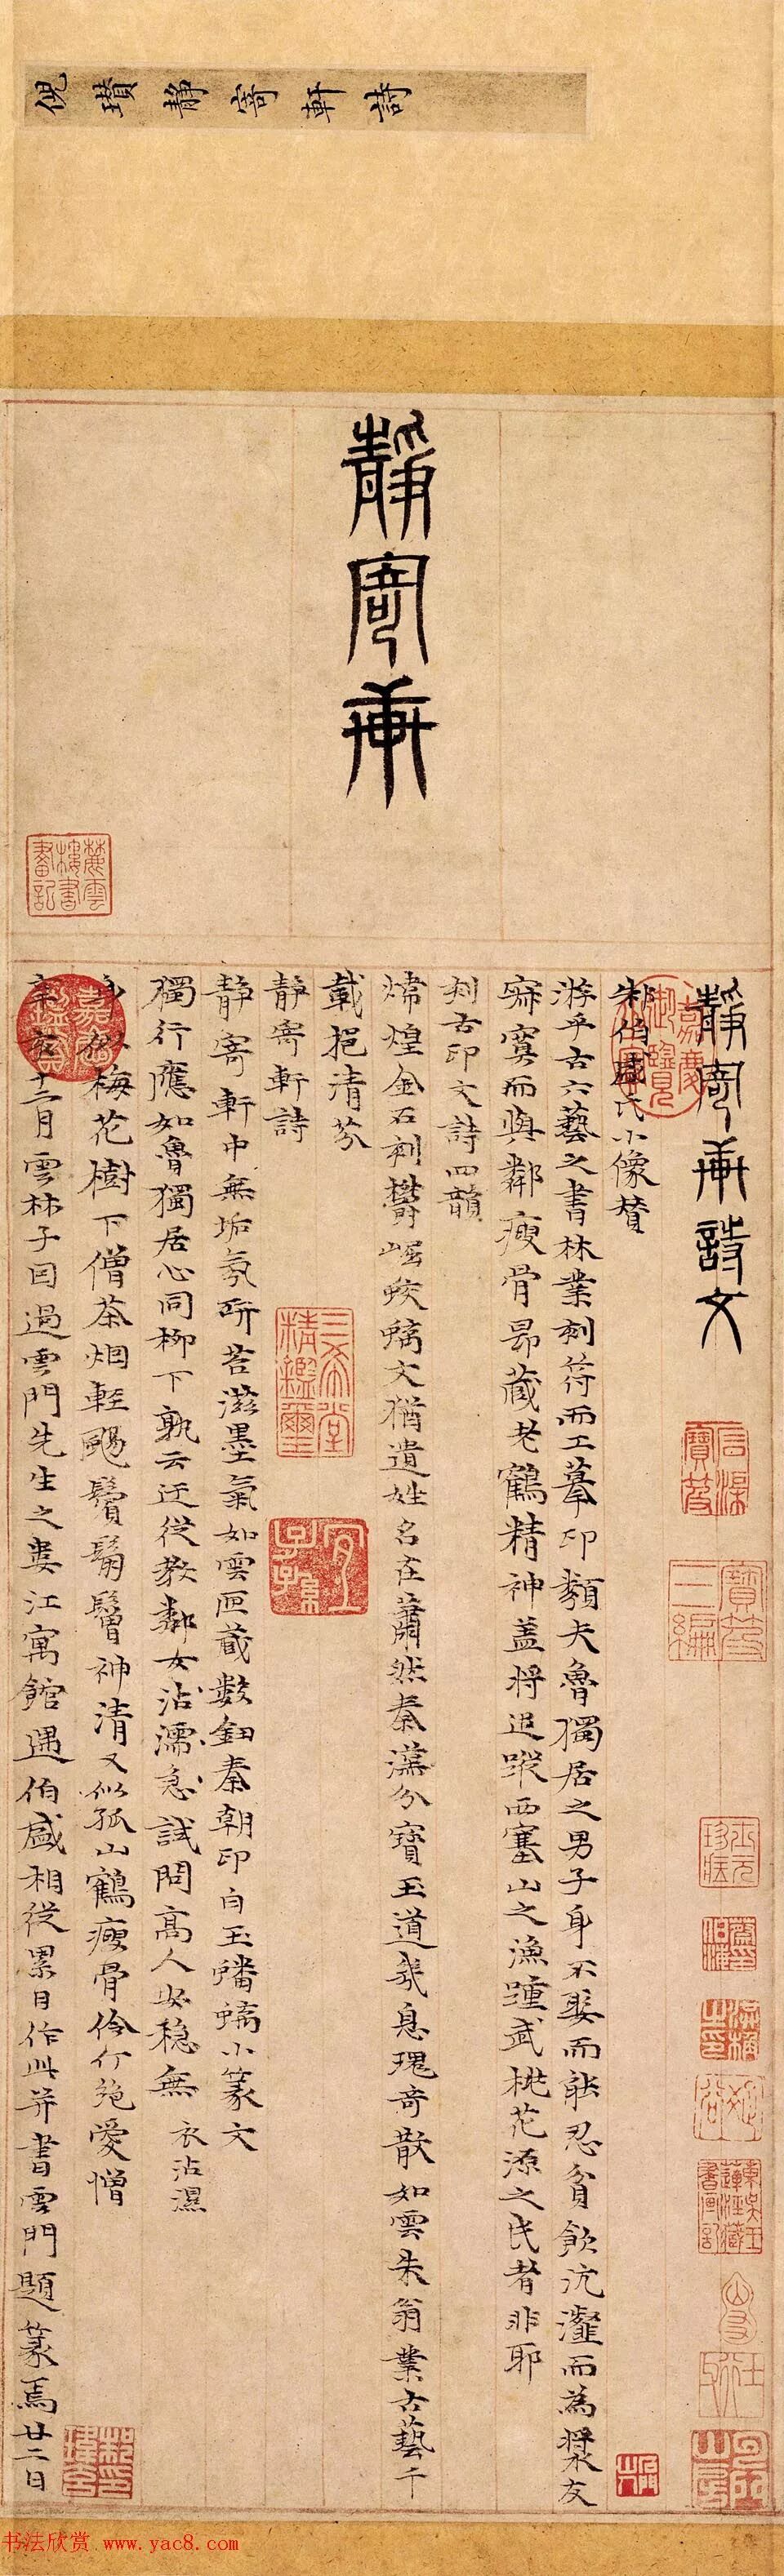 倪瓚靜寄軒詩
靜寄軒
靜寄軒詩文
朱伯盛氏小像贊
游乎古六藝之書林業刻符而工摹印類夫魯獨居之男子身不娶而能忍貧飲沆瀣而為漿友
寂寞而與鄰瘦骨昂藏老鶴精神蓋將追蹤西塞山之漁踵武桃花源之民者非耶
刻古印文詩四韻
煒煌金石刻鬱崛蛟螭文猶遺姓名在蕭然秦漢分寶玉道或息瑰奇散如雲朱翁業古藝千
載挹清芬
靜寄軒詩
靜寄軒中無垢氛研苔滋墨氣如雲匣藏數鈕秦朝印白玉蟠螭小篆文
獨行應如魯獨居心同柳下孰云迂從教鄰女沾濡急試問高人安穩無 衣沾濕
身似梅花樹下僧茶烟輕颺鬢鬅鬙神清又似孤山鶴瘦骨伶仃絕愛憎
辛亥十二月雲林子因過雲門先生之婁江寓館遇伯盛相從累日作此并書雲門題篆焉廿二日
麓雲樓書畫記
嘉慶御覽之寶
嘉慶鑑賞
三希堂精鑑璽
宜子孫
石渠寶笈
寶笈三編
书法欣赏 www.yac8.com